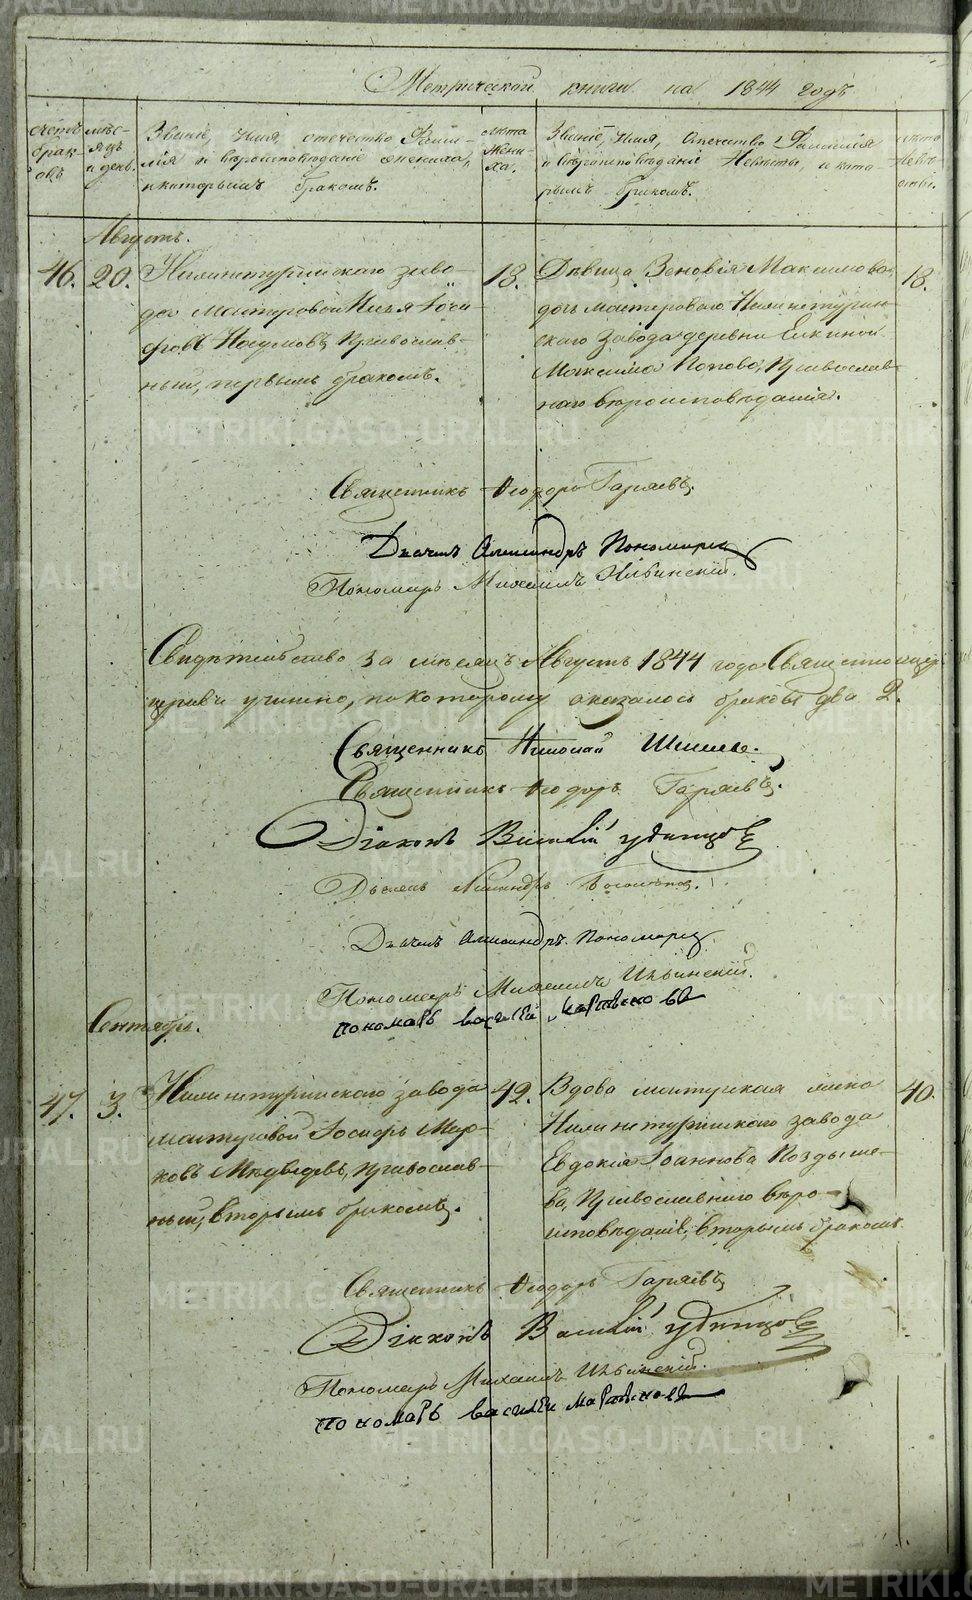 METRIKI.GASO-URAL.RU
Метрической книги на 1844 годъ
счетъ браковъ
мѣсяцъ и день.
Званіе, Имя, отечество Фамилія и вѣроисповѣданіе жениха, и которымъ бракомъ.
лѣта Жениха.
Званіе, Имя, Отечество, Фамилія и вѣроисповѣданіе Невѣсты, и которымъ бракомъ.
лѣта Невѣсты.
Августъ.
46.
20.
Нижнетуринскаго заво-
да мастеровой Илья Іоси-
фовъ Наумовъ, Православ-
ный, первымъ бракомъ.
18.
Дѣвица Зеновія Максимова,
дочь мастероваго Нижнетурин-
скаго Завода деревни Елкиной
Максима Попова, Православ-
наго вѣроисповѣданія.
18.
Священникъ Ѳеодоръ Гаряевъ.
Дьячекъ Александръ Пономаревъ
Пономарь Михаилъ Ильинскій.
Свидѣтельство за месяцъ Августъ 1844 года Священно
церкви учинено, по которому оказалось браковъ два 2.
Священникъ Николай
Священникъ Ѳеодоръ Гаряевъ.
Діаконъ Василій Удинцовъ
Дьячекъ Александръ
Дьячекъ Александръ Пономаревъ
Пономарь Михаилъ Ильинскій.
пономарь василей
Сентябрь.
47.
3.
Нижнетуринскаго завода
мастеровой Іосифъ Мар-
ковъ Медведевъ, православ-
ный, вторымъ бракомъ.
42.
Вдова мастерская жена
Нижнетуринскаго завода
Евдокія Іоаннова Поздыше-
ва, Православнаго вѣро-
исповѣданія, вторымъ бракомъ.
40.
Священникъ Ѳеодоръ Гаряевъ
Діаконъ Василій Удинцовъ
Пономарь Михаилъ Ильинскій.
пономарь василеи